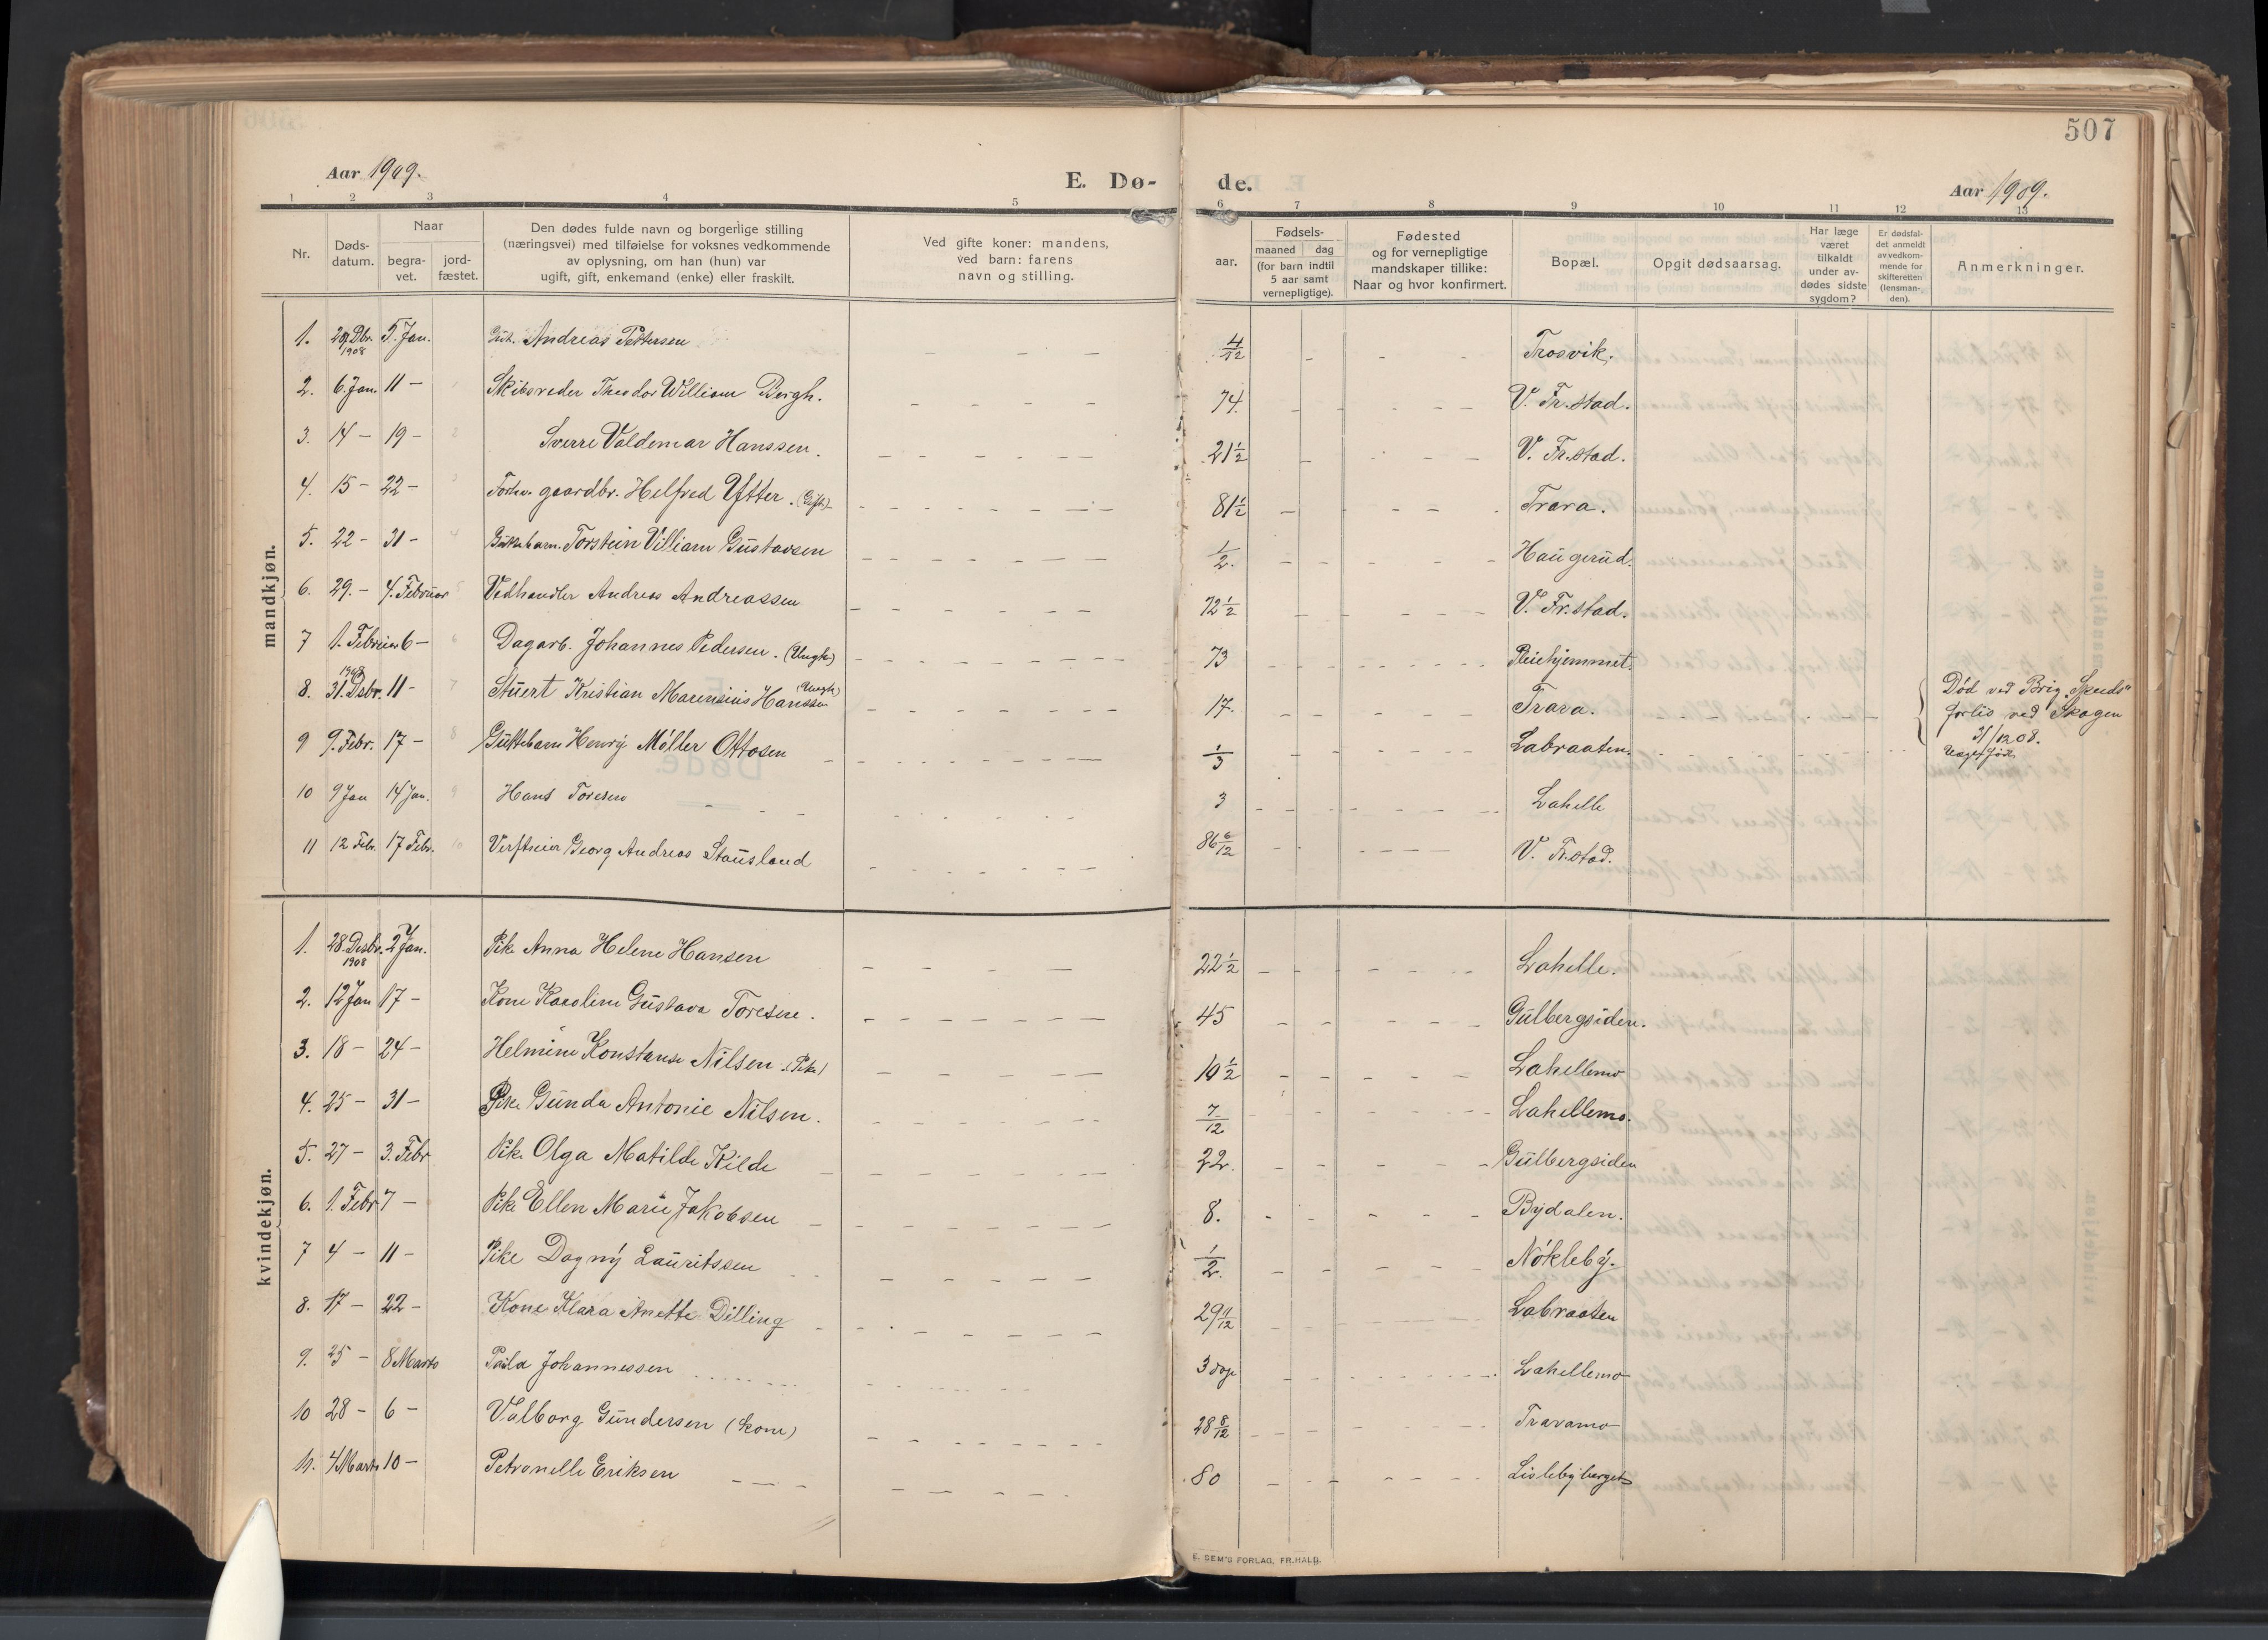 507
Aar 1909.
E. Dø-
de.
Aar 1909.
1 2 3 4 5 6 7 8 9 10 11 12 13
Nr.
Døds-
datum.
Naar
begra-
vet.
jord-
fæstet.
Den dødes fulde navn og borgerlige stilling
(næringsvei) med tilføielse for voksnes vedkommende
av oplysning, om han (hun) var
ugift, gift, enkemand (enke) eller fraskilt.
Ved gifte koner: mandens,
ved barn: farens
navn og stilling.
aar.
Fødsels-
maaned dag
(for barn indtil
5 aar samt
vernepligtige).
Fødested
og for vernepligtige
mandskaper tillike:
Naar og hvor konfirmert.
Bopæl.
Opgit dødsaarsag.
Har læge
været
tilkaldt
under av-
dødes sidste
sygdom?
Er dødsfal-
det anmeldt
av vedkom-
mende for
skifteretten
(lensman-
den).
Anmerkninger.
mandkjøn.
1. 29 Dbr. 1908 5. Jan. Andreas Pettersen 4/12 Trosvik.
2. 6. Jan. 11 — Skibsreder Theodor William Bergh. 74 V. Fr.stad.
3. 14 — 19 — Sverre Valdemar Hanssen. 21½ V. Fr.stad.
4. 15 — 22 — Forhv. gaardbr. Helfred Ytter. (Gift) 81½ Trara.
5. 22 — 31 — Guttebarn Torstein Villiam Gustavsen ½. Haugerud.
6. 29. — 4. Februar Vedhandler Andreas Andreassen 72½ V. Fr.stad.
7 1. Februar 6 — Dagarb. Johannes Pedersen. (Ungk) 73 Pleiehjemmet.
8. 31. Dsbr. 1908 11 — Stuert Kristian Marensius Hanssen (Ungk) 17. Trara. Død ved Brig „Speeds"
forlis ved Skagen
31/12 08.
9 9. Febr. 17 — Guttebarn Henry Møller Ottosen 1/3 Labraaten.
10 9 Jan 14 Jan. Hans Toresen 3 Lahelle
11 12 Febr. 17 Febr. Verfteier Georg Andreas Stausland 86 6/12 V. Fr.stad.
kvindekjøn.
1. 28. Desbr. 1908 2 Jan. Pike Anna Helene Hansen 22½ Lahelle.
2. 12 Jan 17 — Kone Karoline Gustava Toresen. 45 Gulbergsiden.
3. 18 — 24 — Helmine Konstanse Nilsen (Pike) 10½ Lahellemo
4. 25 — 31 — Pike Gunda Antonie Nilsen. 7/12 Lahellemo.
5. 27 — 3. Febr Pike Olga Matilde Kilde 22. Gulbergsiden
6. 1. Febr 7 — Pike Ellen Marie Jakobsen 8. Bydalen.
7 4 — 11 — Pike Dagny Lauritssen ½. Nøkleby.
8. 17 — 22 — Kone Klara Anette Dilling 29 11/12 Labraaten
9. 25 — 8 Marts Paula Johannessen 3 dage Lahellemo
10 28 — 6 — Valborg Gundersen (kone) 28 8/12 Traramo
11. 4 Marts 10 — Petronelle Eriksen 80 Lislebyberget
E. SEM'S FORLAG, FR.HALD.